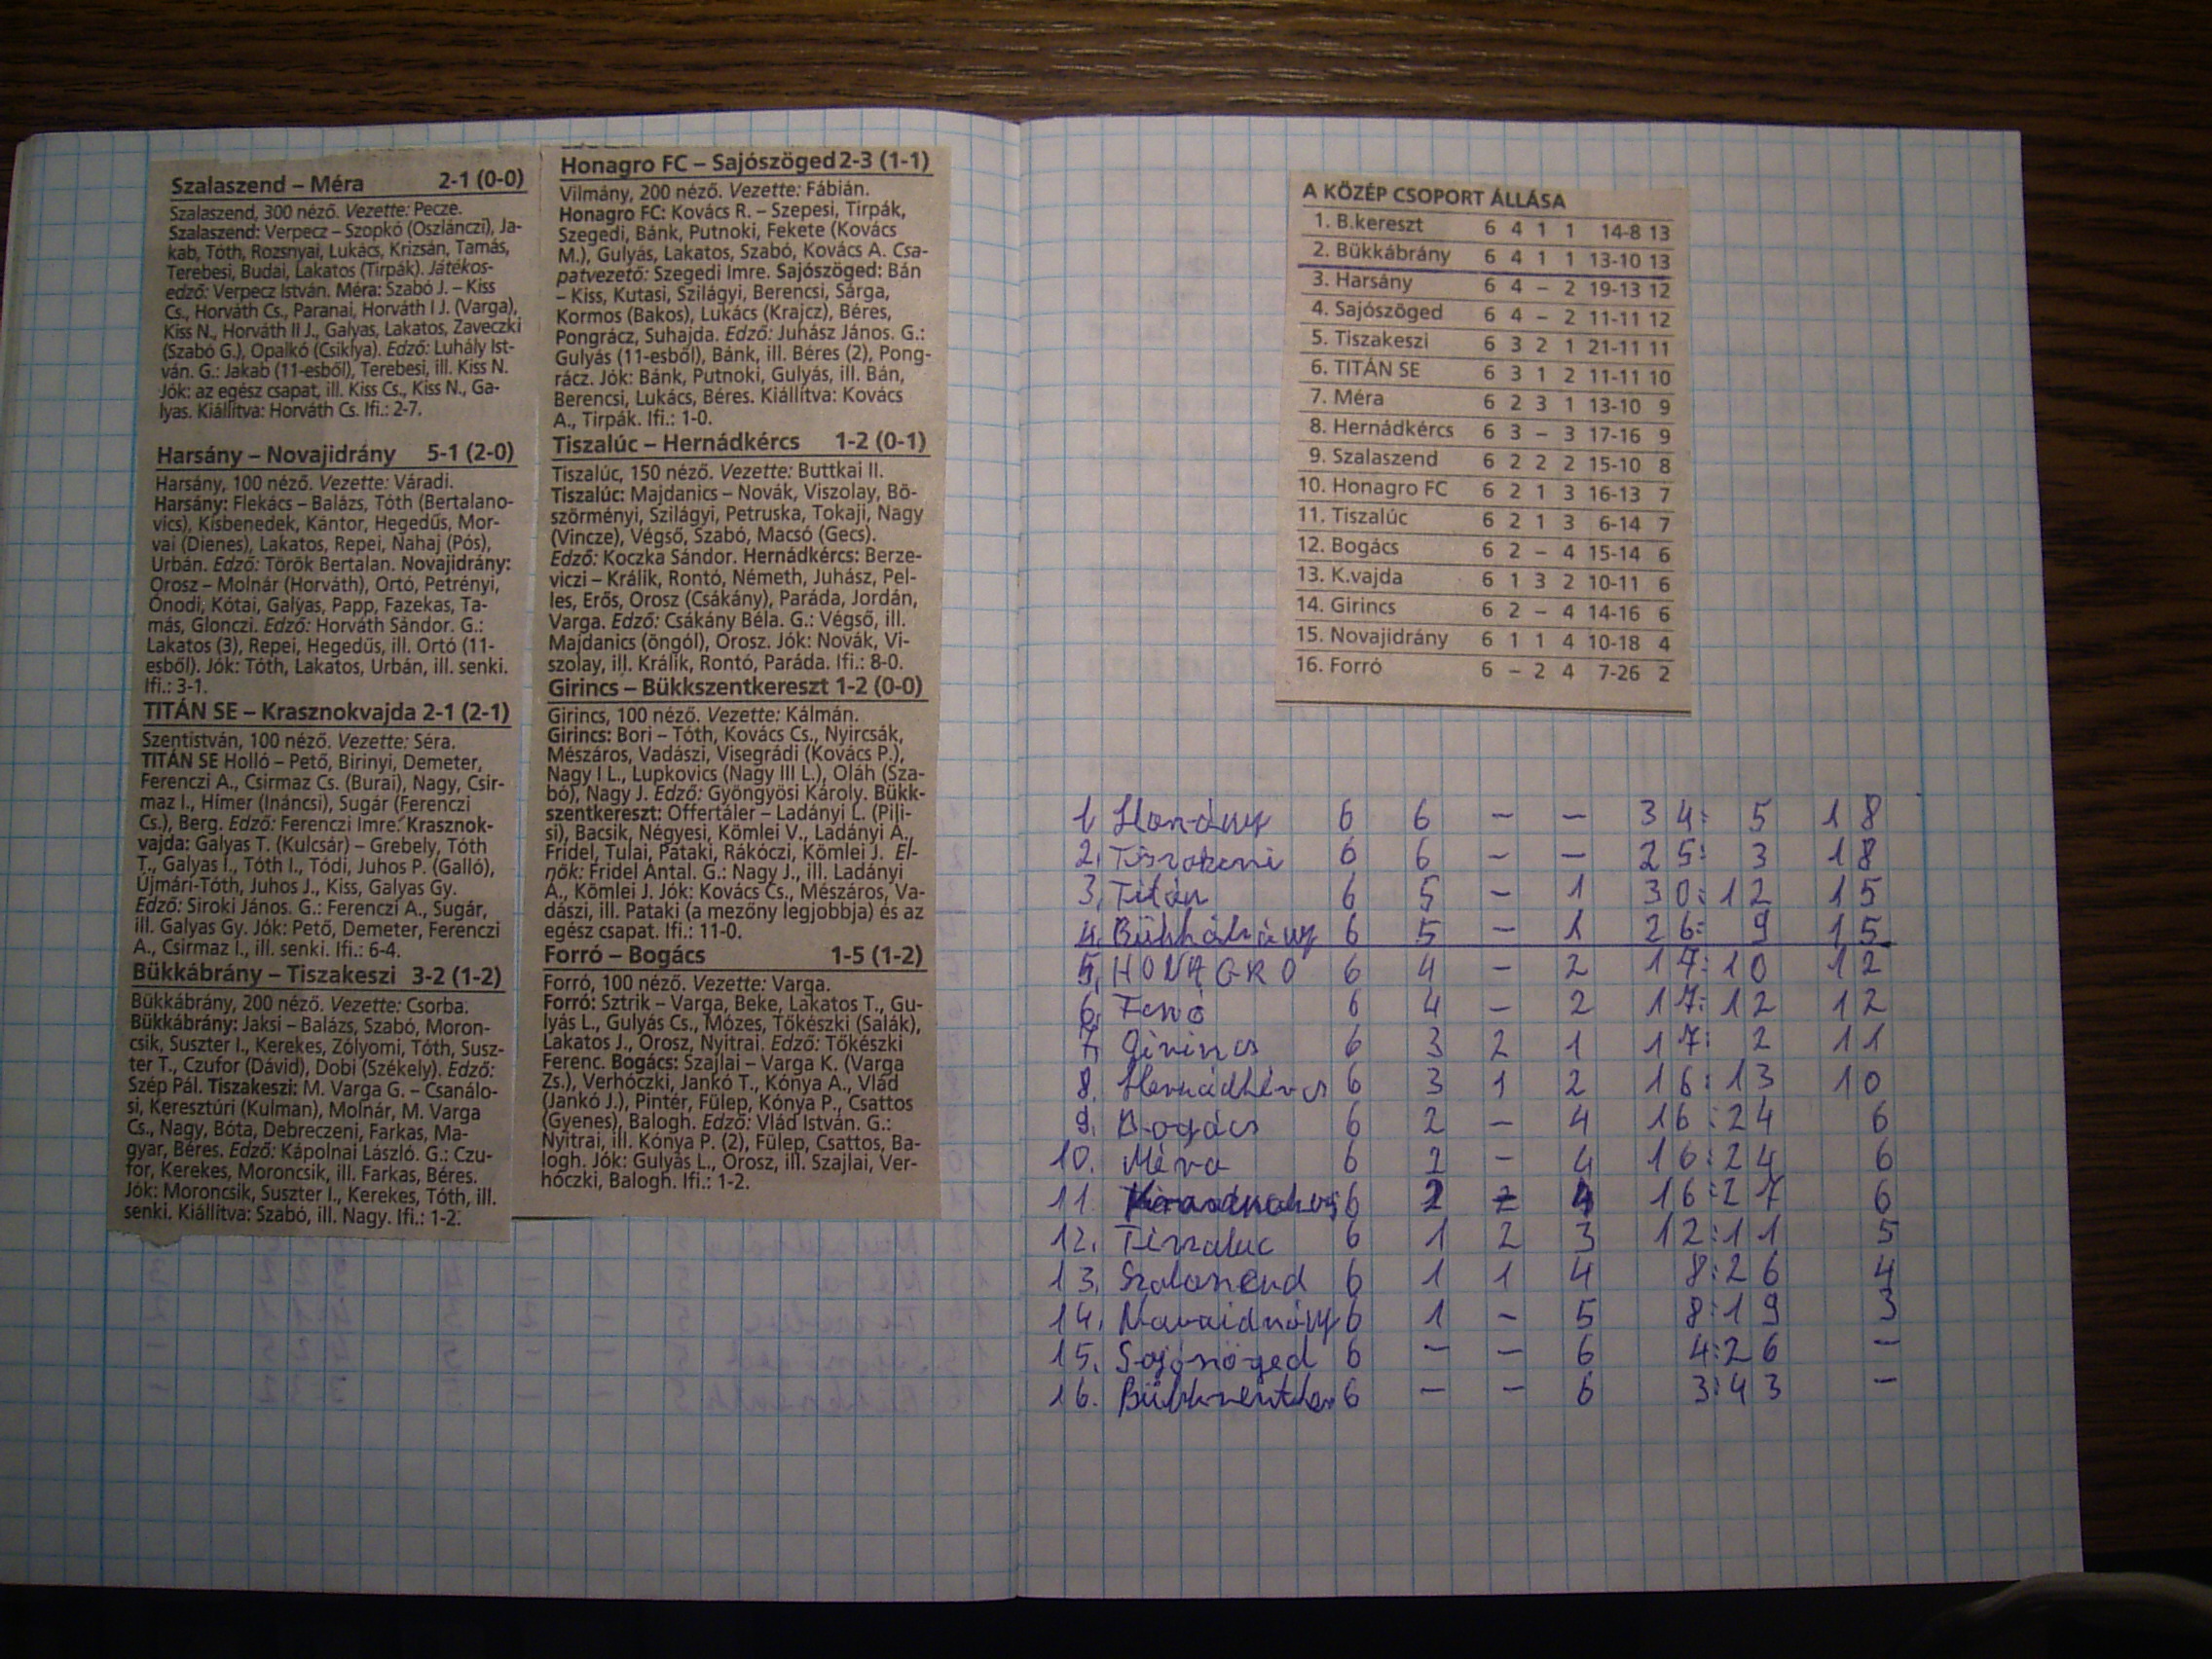 Szalaszend – Méra 2-1 (0-0)
Szalaszend, 300 néző. Vezette: Pecze.
Szalaszend: Verpecz – Szopkó (Oszlánczi), Ja-
kab, Tóth, Rozsnyai, Lukács, Krizsán, Tamás,
Terebesi, Budai, Lakatos (Tirpák). Játékos-
edző: Verpecz István. Méra: Szabó J. – Kiss
Cs., Horváth Cs., Paranai, Horváth I J. (Varga),
Kiss N., Horváth II J., Galyas, Lakatos, Zaveczki
(Szabó G.), Opalkó (Csiklya). Edző: Luhály Ist-
ván. G.: Jakab (11-esből), Terebesi, ill. Kiss N.
Jók: az egész csapat, ill. Kiss Cs., Kiss N., Ga-
lyas. Kiállítva: Horváth Cs. Ifi.: 2-7.
Harsány – Novajidrány 5-1 (2-0)
Harsány, 100 néző. Vezette: Váradi.
Harsány: Flekács – Balázs, Tóth (Bertalano-
vics), Kisbenedek, Kántor, Hegedűs, Mor-
vai (Dienes), Lakatos, Repei, Nahaj (Pós),
Urbán. Edző: Török Bertalan. Novajidrány:
Orosz – Molnár (Horváth), Ortó, Petrényi,
Ónodi, Kótai, Galyas, Papp, Fazekas, Ta-
más, Glonczi. Edző: Horváth Sándor. G.:
Lakatos (3), Repei, Hegedűs, ill. Ortó (11-
esből). Jók: Tóth, Lakatos, Urbán, ill. senki.
Ifi.: 3-1.
TITÁN SE – Krasznokvajda 2-1 (2-1)
Szentistván, 100 néző. Vezette: Séra.
TITÁN SE Holló – Pető, Birinyi, Demeter,
Ferenczi A., Csirmaz Cs. (Burai), Nagy, Csir-
maz I., Hímer (Ináncsi), Sugár (Ferenczi
Cs.), Berg. Edző: Ferenczi Imre. Krasznok-
vajda: Galyas T. (Kulcsár) – Grebely, Tóth
T., Galyas I., Tóth I., Tódi, Juhos P. (Galló),
Újmári-Tóth, Juhos J., Kiss, Galyas Gy.
Edző: Siroki János. G.: Ferenczi A., Sugár,
ill. Galyas Gy. Jók: Pető, Demeter, Ferenczi
A., Csirmaz I., ill. senki. Ifi.: 6-4.
Bükkábrány – Tiszakeszi 3-2 (1-2)
Bükkábrány, 200 néző. Vezette: Csorba.
Bükkábrány: Jaksi – Balázs, Szabó, Moron-
csik, Suszter I., Kerekes, Zólyomi, Tóth, Susz-
ter T., Czufor (Dávid), Dobi (Székely). Edző:
Szép Pál. Tiszakeszi: M. Varga G. – Csanálo-
si, Keresztúri (Kulman), Molnár, M. Varga
Cs., Nagy, Bóta, Debreczeni, Farkas, Ma-
gyar, Béres. Edző: Kápolnai László. G.: Czu-
for, Kerekes, Moroncsik, ill. Farkas, Béres.
Jók: Moroncsik, Suszter I., Kerekes, Tóth, ill.
senki. Kiállítva: Szabó, ill. Nagy. Ifi.: 1-2.
Honagro FC – Sajószöged 2-3 (1-1)
Vilmány, 200 néző. Vezette: Fábián.
Honagro FC: Kovács R. – Szepesi, Tirpák,
Szegedi, Bánk, Putnoki, Fekete (Kovács
M.), Gulyás, Lakatos, Szabó, Kovács A. Csa-
patvezető: Szegedi Imre. Sajószöged: Bán
– Kiss, Kutasi, Szilágyi, Berencsi, Sárga,
Kormos (Bakos), Lukács (Krajcz), Béres,
Pongrácz, Suhajda. Edző: Juhász János. G.:
Gulyás (11-esből), Bánk, ill. Béres (2), Pong-
rácz. Jók: Bánk, Putnoki, Gulyás, ill. Bán,
Berencsi, Lukács, Béres. Kiállítva: Kovács
A., Tirpák. Ifi.: 1-0.
Tiszalúc – Hernádkércs 1-2 (0-1)
Tiszalúc, 150 néző. Vezette: Buttkai II.
Tiszalúc: Majdanics – Novák, Viszolay, Bö-
szörményi, Szilágyi, Petruska, Tokaji, Nagy
(Vincze), Végső, Szabó, Macsó (Gecs).
Edző: Koczka Sándor. Hernádkércs: Berze-
viczi – Králik, Rontó, Németh, Juhász, Pel-
les, Erős, Orosz (Csákány), Paráda, Jordán,
Varga. Edző: Csákány Béla. G.: Végső, ill.
Majdanics (öngól), Orosz. Jók: Novák, Vi-
szolay, ill. Králik, Rontó, Paráda. Ifi.: 8-0.
Girincs – Bükkszentkereszt 1-2 (0-0)
Girincs, 100 néző. Vezette: Kálmán.
Girincs: Bori – Tóth, Kovács Cs., Nyircsák,
Mészáros, Vadászi, Visegrádi (Kovács P.),
Nagy I L., Lupkovics (Nagy III L.), Oláh (Sza-
bó), Nagy J. Edző: Gyöngyösi Károly. Bükk-
szentkereszt: Offertáler – Ladányi L. (Pili-
si), Bacsik, Négyesi, Kömlei V., Ladányi A.,
Fridel, Tulai, Pataki, Rákóczi, Kömlei J. El-
nök: Fridel Antal. G.: Nagy J., ill. Ladányi
A., Kömlei J. Jók: Kovács Cs., Mészáros, Va-
dászi, ill. Pataki (a mezőny legjobbja) és az
egész csapat. Ifi.: 11-0.
Forró – Bogács 1-5 (1-2)
Forró, 100 néző. Vezette: Varga.
Forró: Sztrik – Varga, Beke, Lakatos T., Gu-
lyás L., Gulyás Cs., Mózes, Tőkészki (Salák),
Lakatos J., Orosz, Nyitrai. Edző: Tőkészki
Ferenc. Bogács: Szajlai – Varga K. (Varga
Zs.), Verhóczki, Jankó T., Kónya A., Vlád
(Jankó J.), Pintér, Fülep, Kónya P., Csattos
(Gyenes), Balogh. Edző: Vlád István. G.:
Nyitrai, ill. Kónya P. (2), Fülep, Csattos, Ba-
logh. Jók: Gulyás L., Orosz, ill. Szajlai, Ver-
hóczki, Balogh. Ifi.: 1-2.
A KÖZÉP CSOPORT ÁLLÁSA
1. B.kereszt 6 4 1 1 14-8 13
2. Bükkábrány 6 4 1 1 13-10 13
3. Harsány 6 4 – 2 19-13 12
4. Sajószöged 6 4 – 2 11-11 12
5. Tiszakeszi 6 3 2 1 21-11 11
6. TITÁN SE 6 3 1 2 11-11 10
7. Méra 6 2 3 1 13-10 9
8. Hernádkércs 6 3 – 3 17-16 9
9. Szalaszend 6 2 2 2 15-10 8
10. Honagro FC 6 2 1 3 16-13 7
11. Tiszalúc 6 2 1 3 6-14 7
12. Bogács 6 2 – 4 15-14 6
13. K.vajda 6 1 3 2 10-11 6
14. Girincs 6 2 – 4 14-16 6
15. Novajidrány 6 1 1 4 10-18 4
16. Forró 6 – 2 4 7-26 2
1. Harsány 6 6 – – 34: 5 18
2. Tiszakeszi 6 6 – – 25: 3 18
3. Titán 6 5 – 1 30:12 15
4. Bükkábrány 6 5 – 1 26: 9 15
5. HONAGRO 6 4 – 2 17:10 12
6. Forró 6 4 – 2 17:12 12
7. Girincs 6 3 2 1 17: 2 11
8. Hernádkércs 6 3 1 2 16:13 10
9. Bogács 6 2 – 4 16:24 6
10. Méra 6 2 – 4 16:24 6
11. 6 2 – 4 16:27 6
12. Tiszaluc 6 1 2 3 12:11 5
13. Szalaszend 6 1 1 4 8:26 4
14. Novaidrány 6 1 – 5 8:19 3
15. Sajószöged 6 – – 6 4:26 –
16. Bükkszentker 6 – – 6 3:43 –